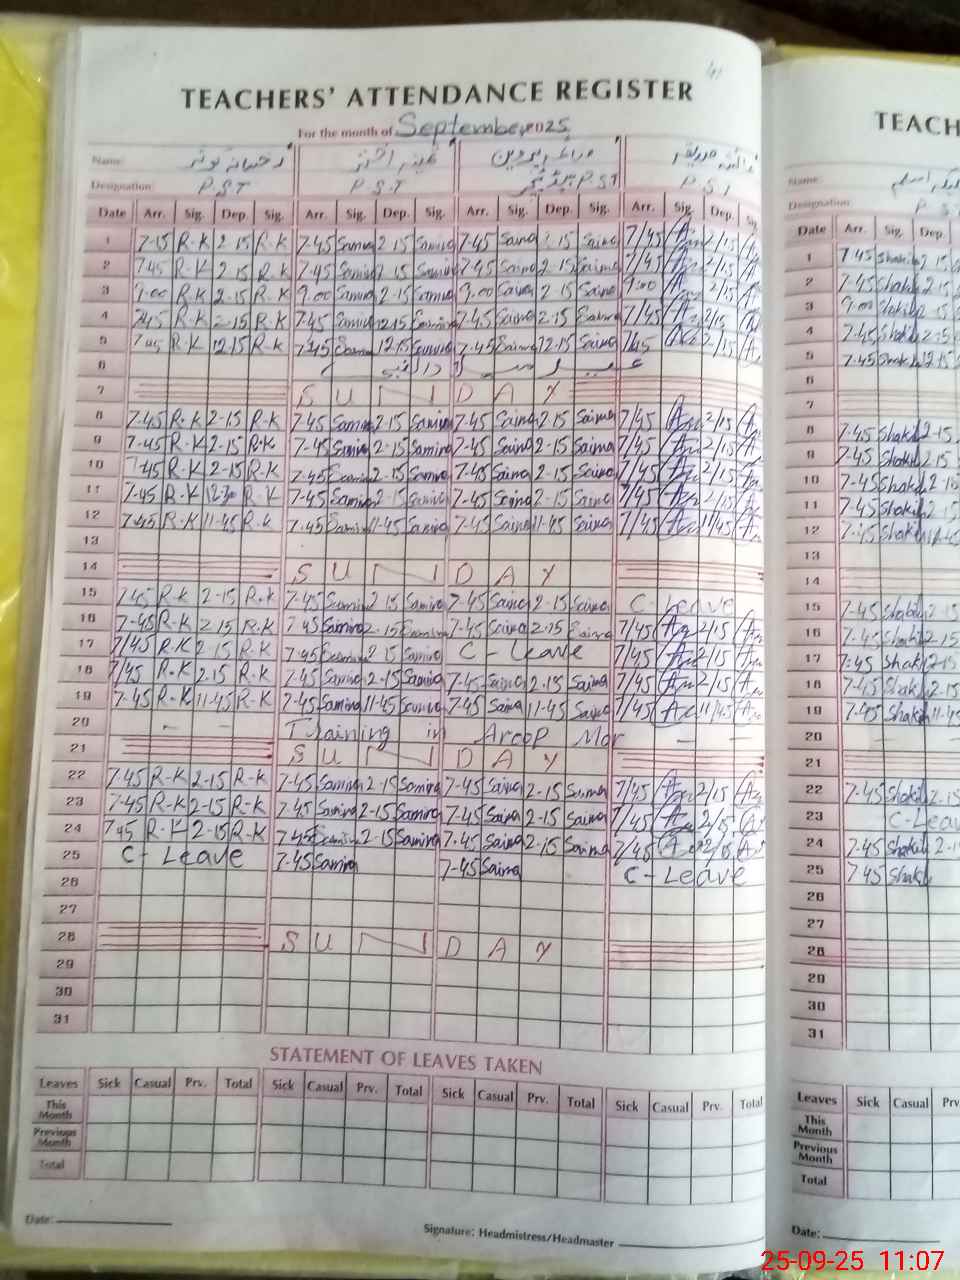 TEACHERS' ATTENDANCE REGISTER
For the month of September 2025
Name: رخسانہ کوثر ثمینہ اختر
Designation: P.S.T P.S.T P.ST P.S.T
Date Arr. Sig. Dep. Sig. Arr. Sig. Dep. Sig. Arr. Sig. Dep. Sig. Arr. Sig. Dep.
1 7-15 R-K 2-15 R-K 7-45 Samina 2-15 Samina 7-45 Saima 2-15 Saima 7/45 2/15
2 7-45 R-K 2-15 R-K 7-45 Samina 2-15 Samina 7-45 Saima 2-15 Saima 7/45 2/15
3 9-00 R-K 2-15 R-K 9-00 Samina 2-15 Samina 9-00 Saima 2-15 Saima 9:00 2/15
4 7-45 R-K 2-15 R-K 7-45 Samina 12-15 Samina 7-45 Saima 2-15 Saima 7/45 2/15
5 7-45 R-K 12-15 R-K 7-45 Samina 12-15 Samina 7-45 Saima 12-15 Saima 7/45 2/15
6
7 SUNDAY
8 7-45 R-K 2-15 R-K 7-45 Samina 2-15 Samina 7-45 Saima 2-15 Saima 7/45 2/15
9 7-45 R-K 2-15 R-K 7-45 Samina 2-15 Samina 7-45 Saima 2-15 Saima 7/45 2/15
10 7-45 R-K 2-15 R-K 7-45 Samina 2-15 Samina 7-45 Saima 2-15 Saima 7/45 2/15
11 7-45 R-K 12-30 R-K 7-45 Samina 2-15 Samina 7-45 Saima 2-15 Saima 7/45 2/15
12 7-45 R-K 11-45 R-K 7-45 Samina 11-45 Samina 7-45 Saima 11-45 Saima 7/45 11/45
13
14 SUNDAY
15 7-45 R-K 2-15 R-K 7-45 Samina 2-15 Samina 7-45 Saima 2-15 Saima C-Leave
16 7-45 R-K 2-15 R-K 7-45 Samina 2-15 Samina 7-45 Saima 2-15 Saima 7/45 2/15
17 7/45 R-K 2-15 R-K 7-45 Samina 2-15 Samina C-Leave 7/45 2/15
18 7/45 R-K 2-15 R-K 7-45 Samina 2-15 Samina 7-45 Saima 2-15 Saima 7/45 2/15
19 7-45 R-K 11-45 R-K 7-45 Samina 11-45 Samina 7-45 Saima 11-45 Saima 7/45 11/45
20 - - Training in Aroop Mor - -
21 SUNDAY
22 7-45 R-K 2-15 R-K 7-45 Samina 2-15 Samina 7-45 Saima 2-15 Saima 7/45 2/15
23 7-45 R-K 2-15 R-K 7-45 Samina 2-15 Samina 7-45 Saima 2-15 Saima 7/45 2/15
24 7-45 R-K 2-15 R-K 7-45 Samina 2-15 Samina 7-45 Saima 2-15 Saima 7/45 2/15
25 C-Leave 7-45 Samina 7-45 Saima C-Leave
26
27
28 SUNDAY
29
30
31
STATEMENT OF LEAVES TAKEN
Leaves Sick Casual Prv. Total Sick Casual Prv. Total Sick Casual Prv. Total Sick Casual Prv. Total
This Month
Previous Month
Total
Date:
Signature: Headmistress/Headmaster
TEACH
Name:
Designation
Date Arr. Sig. Dep.
1 7-45 Shakil 2-15
2 7-45 Shakil 2-15
3 9-00 Shakil 2-15
4 7-45 Shakil 2-15
5 7-45 Shakil 12-15
6
7
8 7-45 Shakil 2-15
9 7-45 Shakil 2-15
10 7-45 Shakil 2-15
11 7-45 Shakil 2-15
12 7-45 Shakil 11-45
13
14
15 7-45 Shakil 2-15
16 7-45 Shakil 2-15
17 7-45 Shakil 2-15
18 7-45 Shakil 2-15
19 7-45 Shakil 11-45
20
21
22 7-45 Shakil 2-15
23 C-Leav
24 7-45 Shakil 2-15
25 7-45 Shakil
26
27
28
29
30
31
Leaves Sick Casual Prv
This Month
Previous Month
Total
Date:
25-09-25 11:07